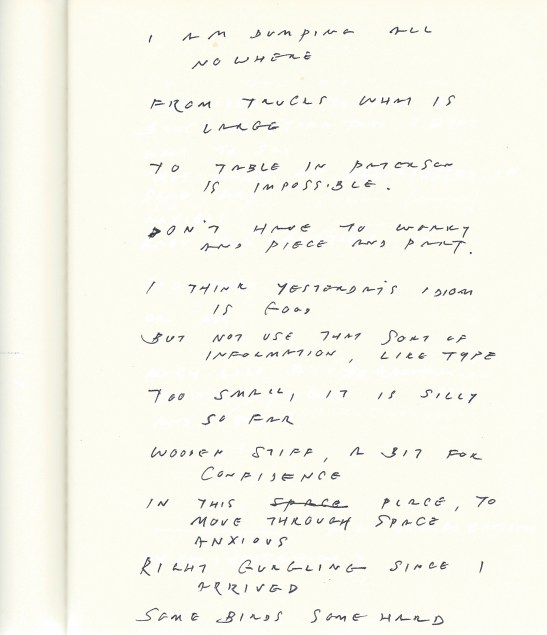 I AM DUMPING ALL
NOWHERE
FROM TRUCKS WHAT IS
LARGE
TO TABLE IN PATERSON
IS IMPOSSIBLE.
DON'T HAVE TO WORRY
AND PIECE AND PART.
I THINK YESTERDAY'S IDIOM
IS FOOD
BUT NOT USE THAT SORT OF
INFORMATION, LIKE TYPE
TOO SMALL, IT IS SILLY
SO FAR
WOODEN STIFF, A BIT FOR
CONFIDENCE
IN THIS SPACE PLACE, TO
MOVE THROUGH SPACE
ANXIOUS
RIGHT GURGLING SINCE I
ARRIVED
SOME BIRDS SOME HARD